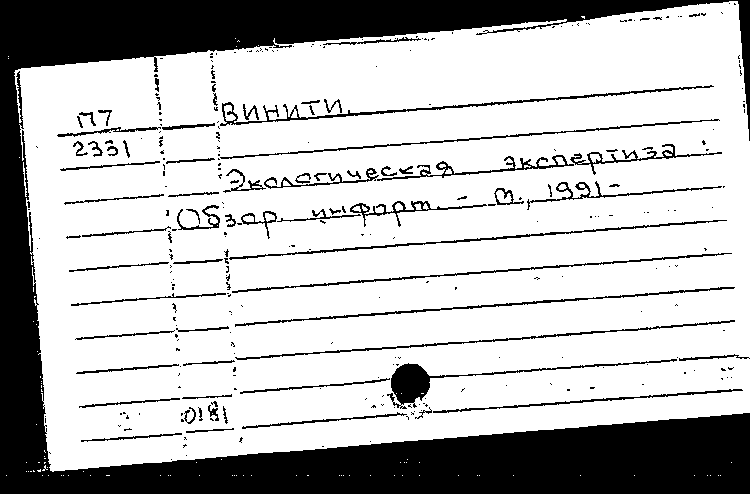 П7 ВИНИТИ.
2331
Экологическая экспертиза :
Обзор. информ. - М., 1991-
0181